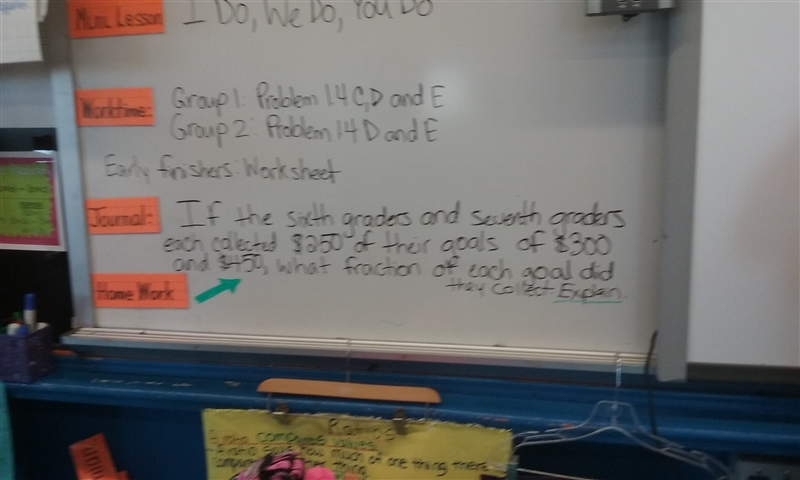 Mini Lesson I Do, We Do, You Do
Worktime: Group 1: Problem 1.4 C, D and E
Group 2: Problem 1.4 D and E
Early finishers: Worksheet
Journal: If the sixth graders and seventh graders
each collected $250 of their goals of $300
and $450, what fraction of each goal did
they collect Explain.
Home Work
Ratios
A ratio compares values.
A ratio says how much of one thing there